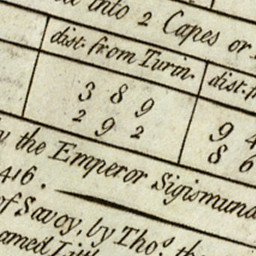 into 2 Capes or
dist. from Turin. dist.
3 8 9
2 9 2
9 4
8 6
the Emperor Sigismund
416.
of Savoy, by Tho.s the